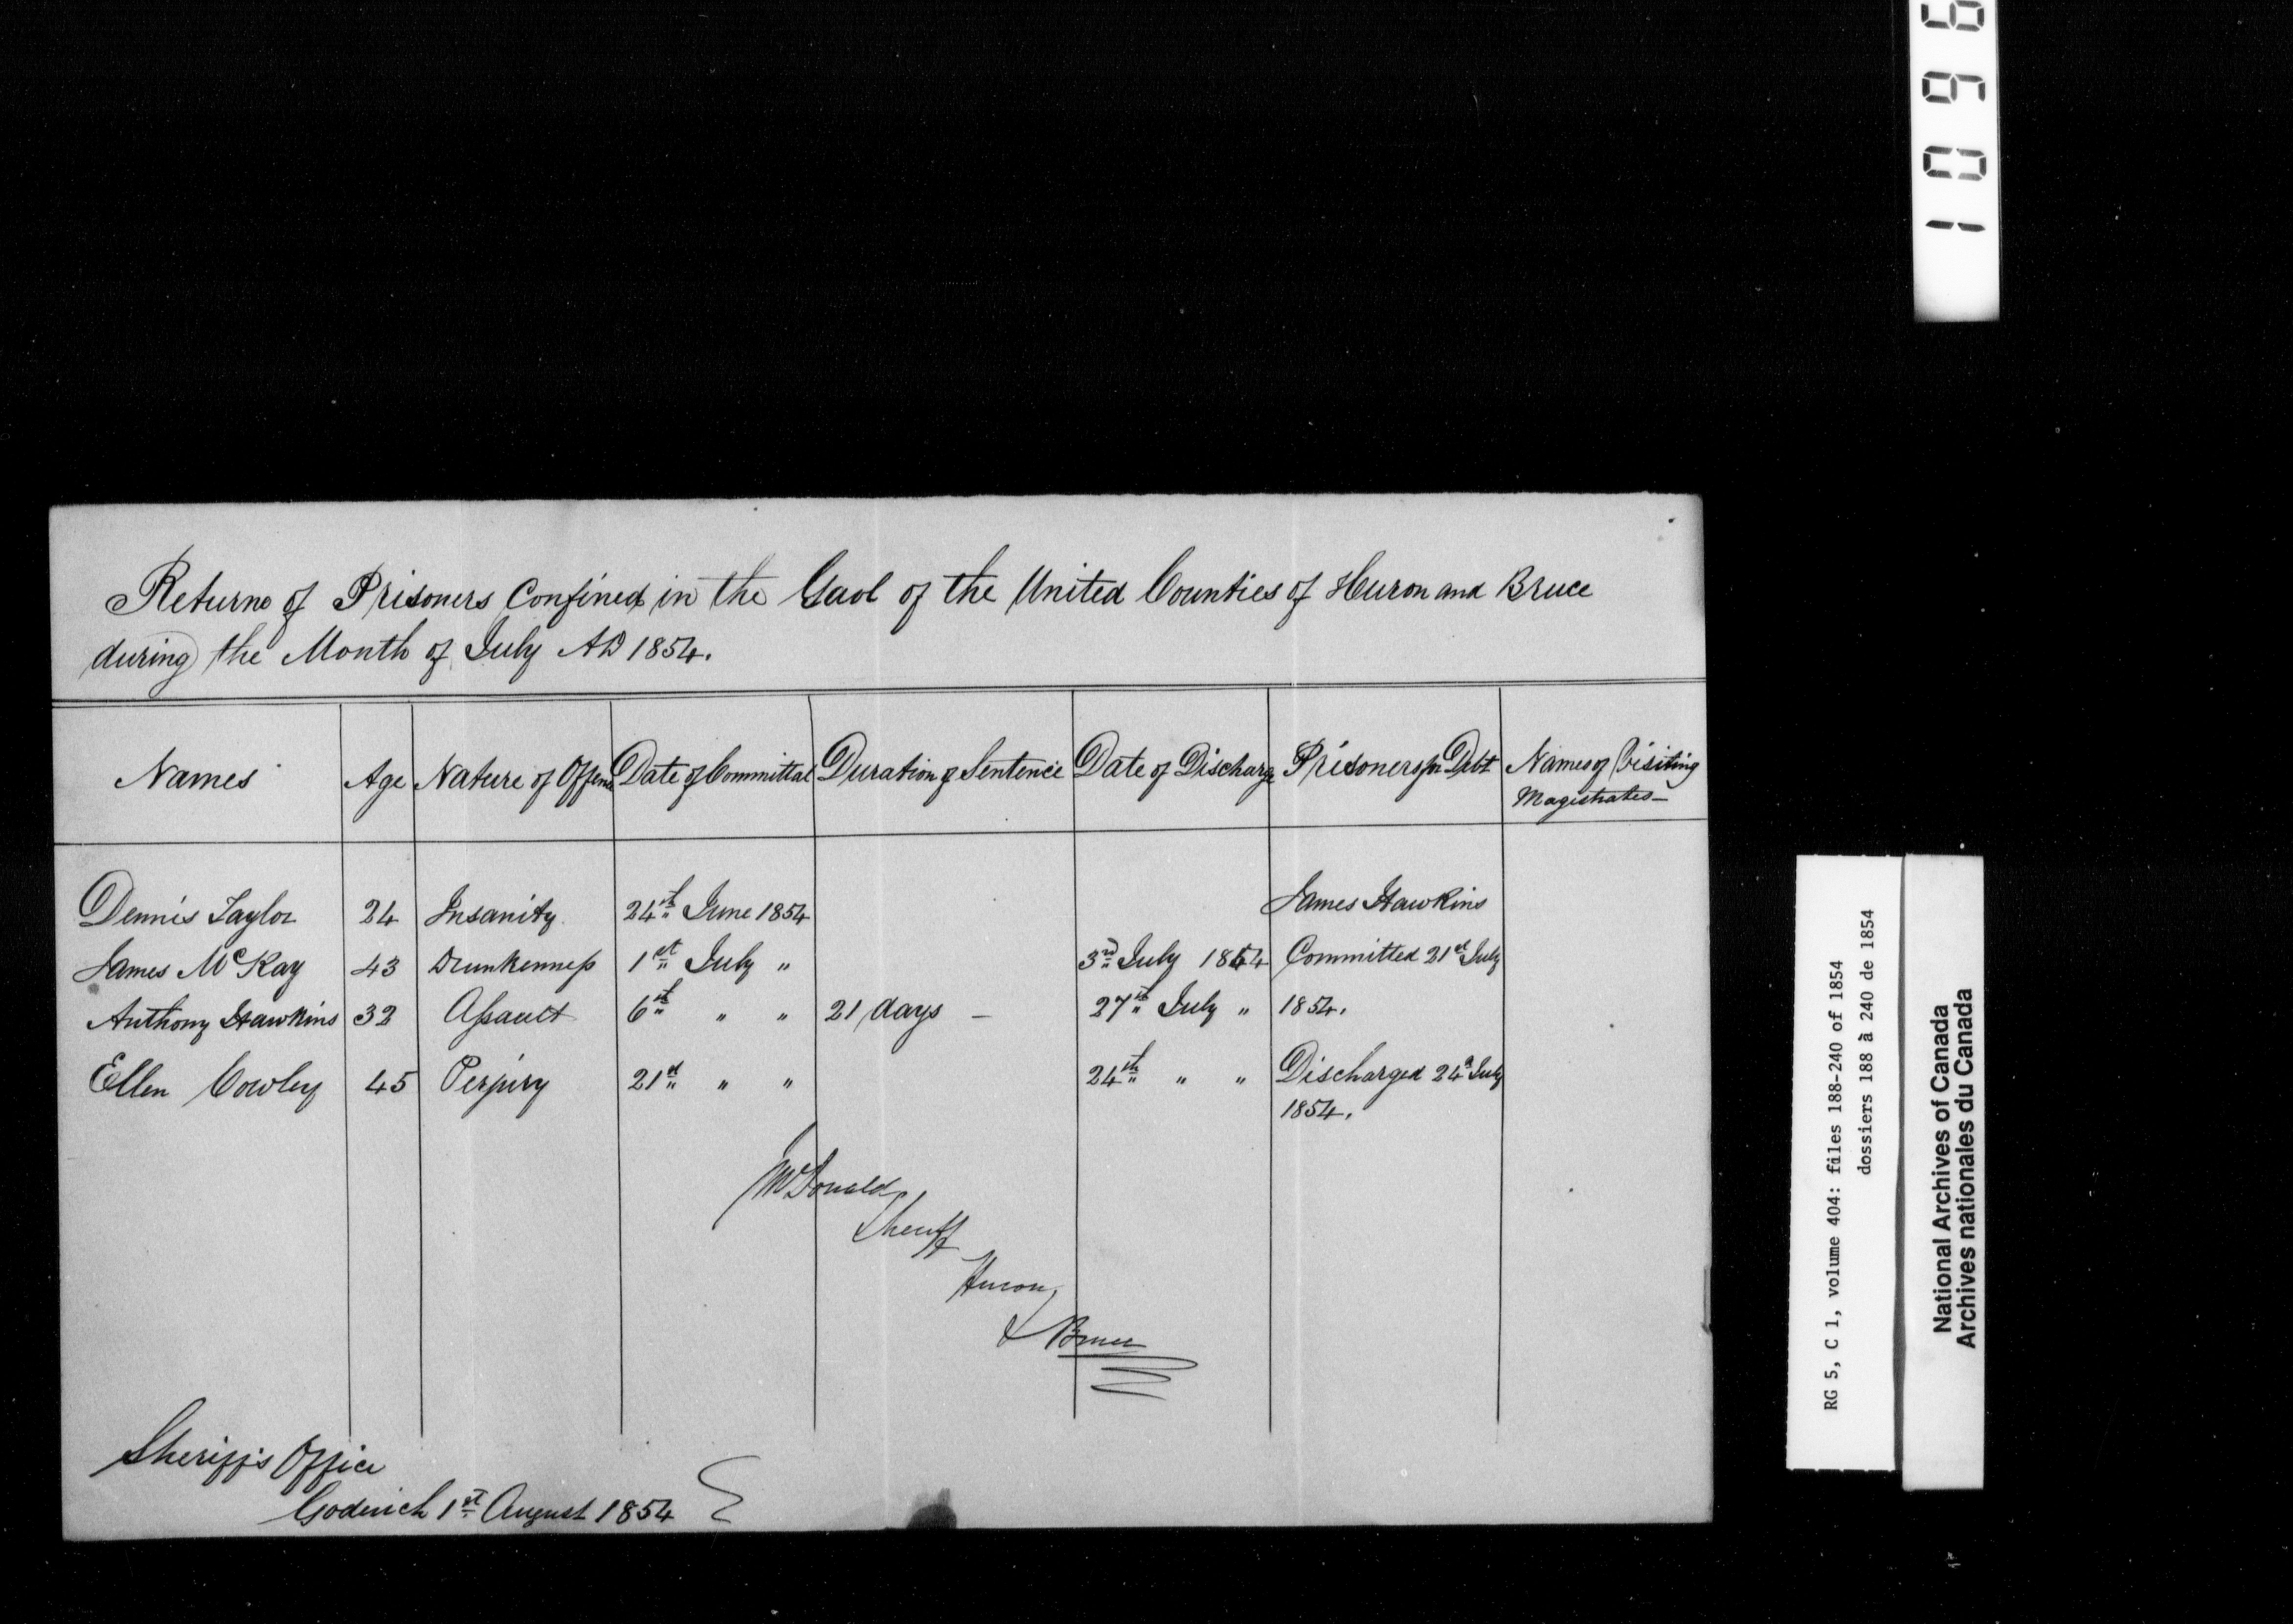 1096
Returns of Prisoners Confined in the Gaol of the United Counties of Huron and Bruce
during the Month of July AD 1854.
Names Age Nature of Offence Date of Committal Duration of Sentence Date of Discharge Prisoners for Debt Names of Visiting
Magistrates
Dennis Taylor 24 Insanity 24th June 1854 James Hawkins
James McKay 43 Drunkenness 1st July " 3rd July 1854 Committed 21st July
Anthony Hawkins 32 Assault 6th " " 21 days – 27th July " 1854.
Ellen Cowley 45 Perjury 21st " " 24th " " Discharged 24th July
1854.
McDonald
Sheriff
Huron
& Bruce
Sheriff's Office
Goderich 1st August 1854
RG 5, C 1, volume 404: files 188-240 of 1854
dossiers 188 à 240 de 1854
National Archives of Canada
Archives nationales du Canada